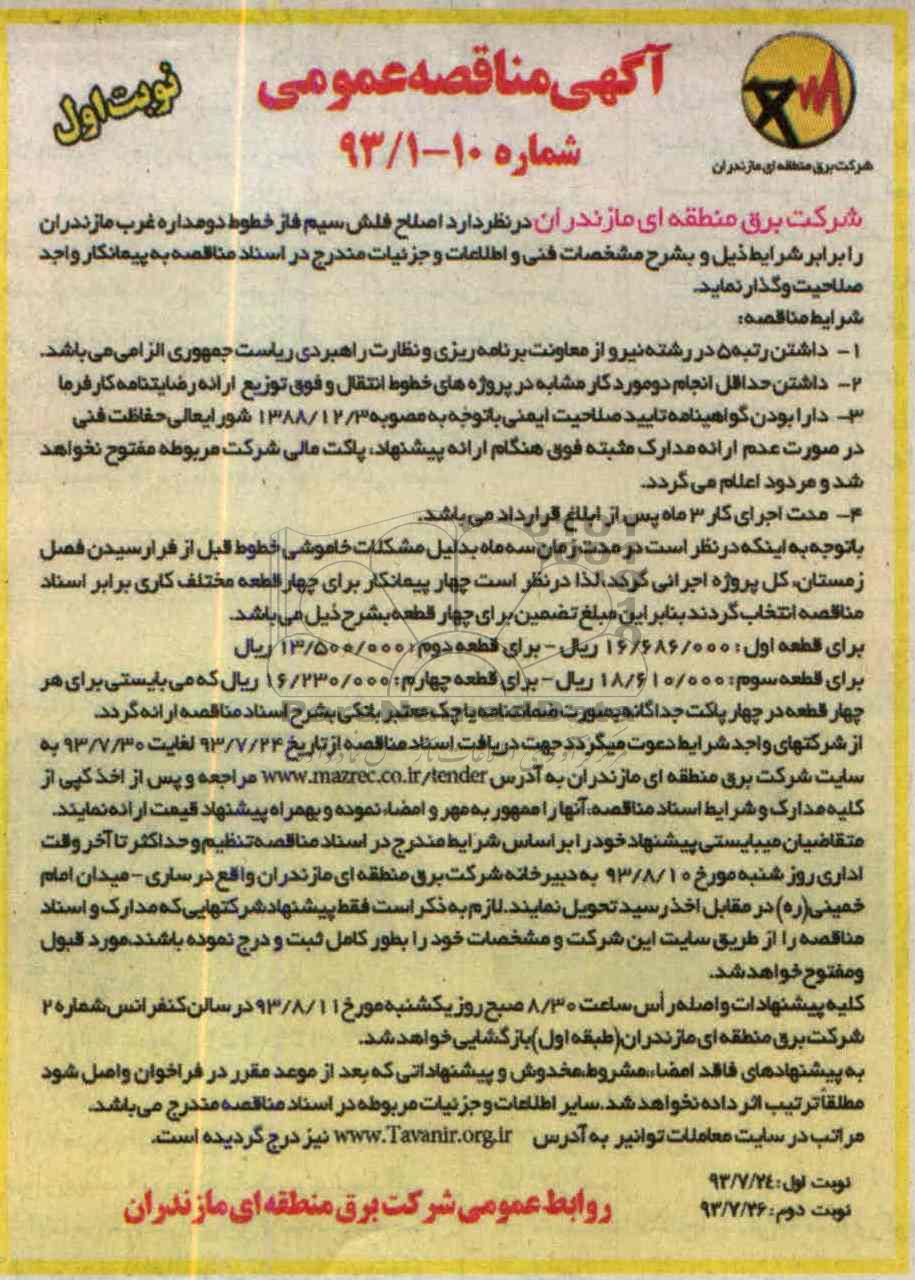 نوبت اول
آگهی مناقصه عمومی
شماره ۱۰-۹۳/۱
شرکت برق منطقه ای مازندران
شرکت برق منطقه ای مازندران درنظردارد اصلاح فلش سیم فاز خطوط دومداره غرب مازندران
را برابر شرایط ذیل و بشرح مشخصات فنی و اطلاعات و جزئیات مندرج در اسناد مناقصه به پیمانکار واجد
صلاحیت وگذار نماید.
شرایط مناقصه:
۱- داشتن رتبه۵ در رشته نیرو از معاونت برنامه ریزی و نظارت راهبردی ریاست جمهوری الزامی می باشد.
۲- داشتن حداقل انجام دومورد کار مشابه در پروژه های خطوط انتقال و فوق توزیع ارائه رضایتنامه کارفرما
۳- دارا بودن گواهینامه تایید صلاحیت ایمنی باتوجه به مصوبه ۱۳۸۸/۱۲/۳ شورایعالی حفاظت فنی
در صورت عدم ارائه مدارک مثبته فوق هنگام ارائه پیشنهاد، پاکت مالی شرکت مربوطه مفتوح نخواهد
شد و مردود اعلام می گردد.
۴- مدت اجرای کار ۳ ماه پس از ابلاغ قرارداد می باشد.
باتوجه به اینکه درنظر است در مدت زمان سه ماه بدلیل مشکلات خاموشی خطوط قبل از فرارسیدن فصل
زمستان، کل پروژه اجرائی گردد،لذا درنظر است چهار پیمانکار برای چهارقطعه مختلف کاری برابر اسناد
مناقصه انتخاب گردند بنابراین مبلغ تضمین برای چهار قطعه بشرح ذیل می باشد.
برای قطعه اول: ۱۶/۶۸۶/۰۰۰ ریال - برای قطعه دوم: ۱۳/۵۰۰/۰۰۰ ریال
برای قطعه سوم: ۱۸/۶۱۰/۰۰۰ ریال - برای قطعه چهارم: ۱۶/۲۳۰/۰۰۰ ریال که می بایستی برای هر
چهار قطعه در چهار پاکت جداگانه بصورت ضمانتنامه یا چک معتبر بانکی بشرح اسناد مناقصه ارائه گردد.
از شرکتهای واجد شرایط دعوت میگردد جهت دریافت اسناد مناقصه از تاریخ ۹۳/۷/۲۴ لغایت ۹۳/۷/۳۰ به
سایت شرکت برق منطقه ای مازندران به آدرس www.mazrec.co.ir/tender مراجعه و پس از اخذ کپی از
کلیه مدارک و شرایط اسناد مناقصه، آنها را ممهور به مهر و امضاء نموده و بهمراه پیشنهاد قیمت ارائه نمایند.
متقاضیان میبایستی پیشنهاد خود را بر اساس شرایط مندرج در اسناد مناقصه تنظیم و حداکثر تا آخر وقت
اداری روز شنبه مورخ ۹۳/۸/۱۰ به دبیرخانه شرکت برق منطقه ای مازندران واقع در ساری - میدان امام
خمینی(ره) در مقابل اخذ رسید تحویل نمایند. لازم به ذکر است فقط پیشنهاد شرکتهایی که مدارک و اسناد
مناقصه را از طریق سایت این شرکت و مشخصات خود را بطور کامل ثبت و درج نموده باشند، مورد قبول
ومفتوح خواهد شد.
کلیه پیشنهادات واصله رأس ساعت ۸/۳۰ صبح روز یکشنبه مورخ ۹۳/۸/۱۱ در سالن کنفرانس شماره ۲
شرکت برق منطقه ای مازندران(طبقه اول) بازگشایی خواهد شد.
به پیشنهادهای فاقد امضاء،مشروط،مخدوش و پیشنهاداتی که بعد از موعد مقرر در فراخوان واصل شود
مطلقاً ترتیب اثر داده نخواهد شد. سایر اطلاعات و جزئیات مربوطه در اسناد مناقصه مندرج می باشد.
مراتب در سایت معاملات توانیر به آدرس www.Tavanir.org.ir نیز درج گردیده است.
نوبت اول: ۹۳/۷/۲۴
نوبت دوم: ۹۳/۷/۲۶
روابط عمومی شرکت برق منطقه ای مازندران